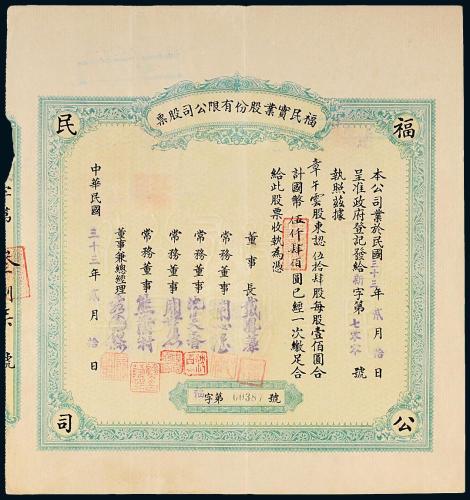 福民實業股份有限公司股票
福
民
公
司
本公司業於民國三十三年貳月拾日
呈准政府登記發給新字第七零零號
執照茲據
章午雲股東認伍拾肆股每股壹佰圓合
計國幣伍仟肆佰圓已經一次繳足合
給此股票收執為憑
董事長
常務董事
常務董事
常務董事
常務董事
董事兼總經理
中華民國三十三年貳月拾日
福字第00387號